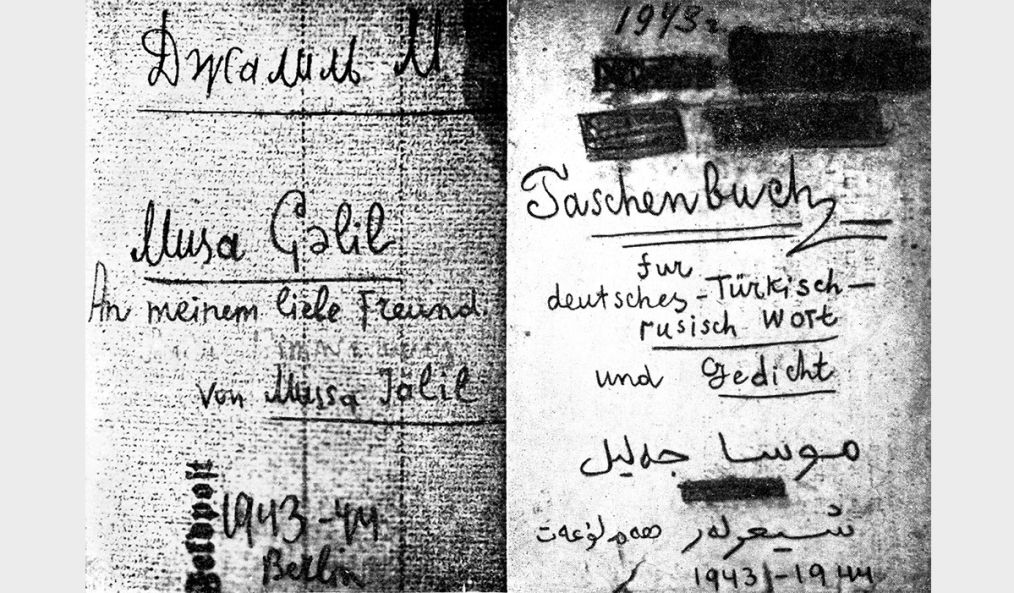 Джалиль М
Musa Çəlil
An meinem liebe Freund
von Mussa Jälil
Feldpost
1943-44
Berlin
1943 г.
Taschenbuch
fur
deutsches - Türkisch -
rusisch Wort
und Gedicht
موسا جەلیل
شیعرلەر هەم لۇغەت
1943-1944